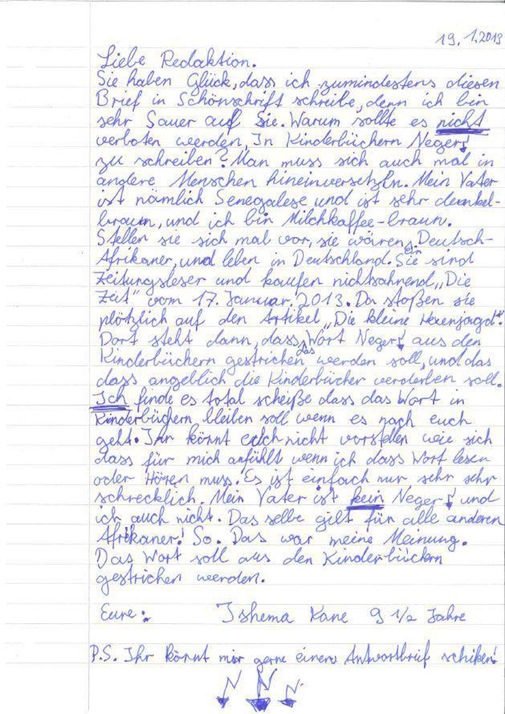 19.1.2013
Liebe Redaktion.
Sie haben Glück, dass ich zumindestens diesen
Brief in Schönschrift schreibe, denn ich bin
sehr Sauer auf Sie. Warum sollte es nicht
verboten werden, In Kinderbüchern Neger
zu schreiben? Man muss sich auch mal in
andere Menschen hineinversetzen. Mein Vater
ist nämlich Senegalese und ist sehr dunkel-
braun, und ich bin Milchkaffee-braun.
Stellen sie sich mal vor, sie wären Deutsch-
Afrikaner, und leben in Deutschland. Sie sind
Zeitungsleser und kaufen nichtsahnend „Die
Zeit" vom 17. Januar. 2013. Da stoßen sie
plötzlich auf den Artikel „Die kleine Hexenjagd".
Dort steht dann, dass das Wort Neger aus den
Kinderbüchern gestrichen werden soll, und das
dass angeblich die Kinderbücher verderben soll.
Ich finde es total scheiße dass das Wort in
Kinderbüchern bleiben soll wenn es nach euch
geht. Ihr könnt euch nicht vorstellen wie sich
dass für mich anfühlt wenn ich dass Wort lesen
oder Hören muss. Es ist einfach nur sehr sehr
schrecklich. Mein Vater ist kein Neger und
ich auch nicht. Das selbe gilt für alle anderen
Afrikaner! So. Das war meine Meinung.
Das Wort soll aus den Kinderbüchern
gestrichen werden.
Eure: Ishema Kane 9 1/2 Jahre
P.S. Ihr könnt mir gerne einen Antwortbrief schiken!